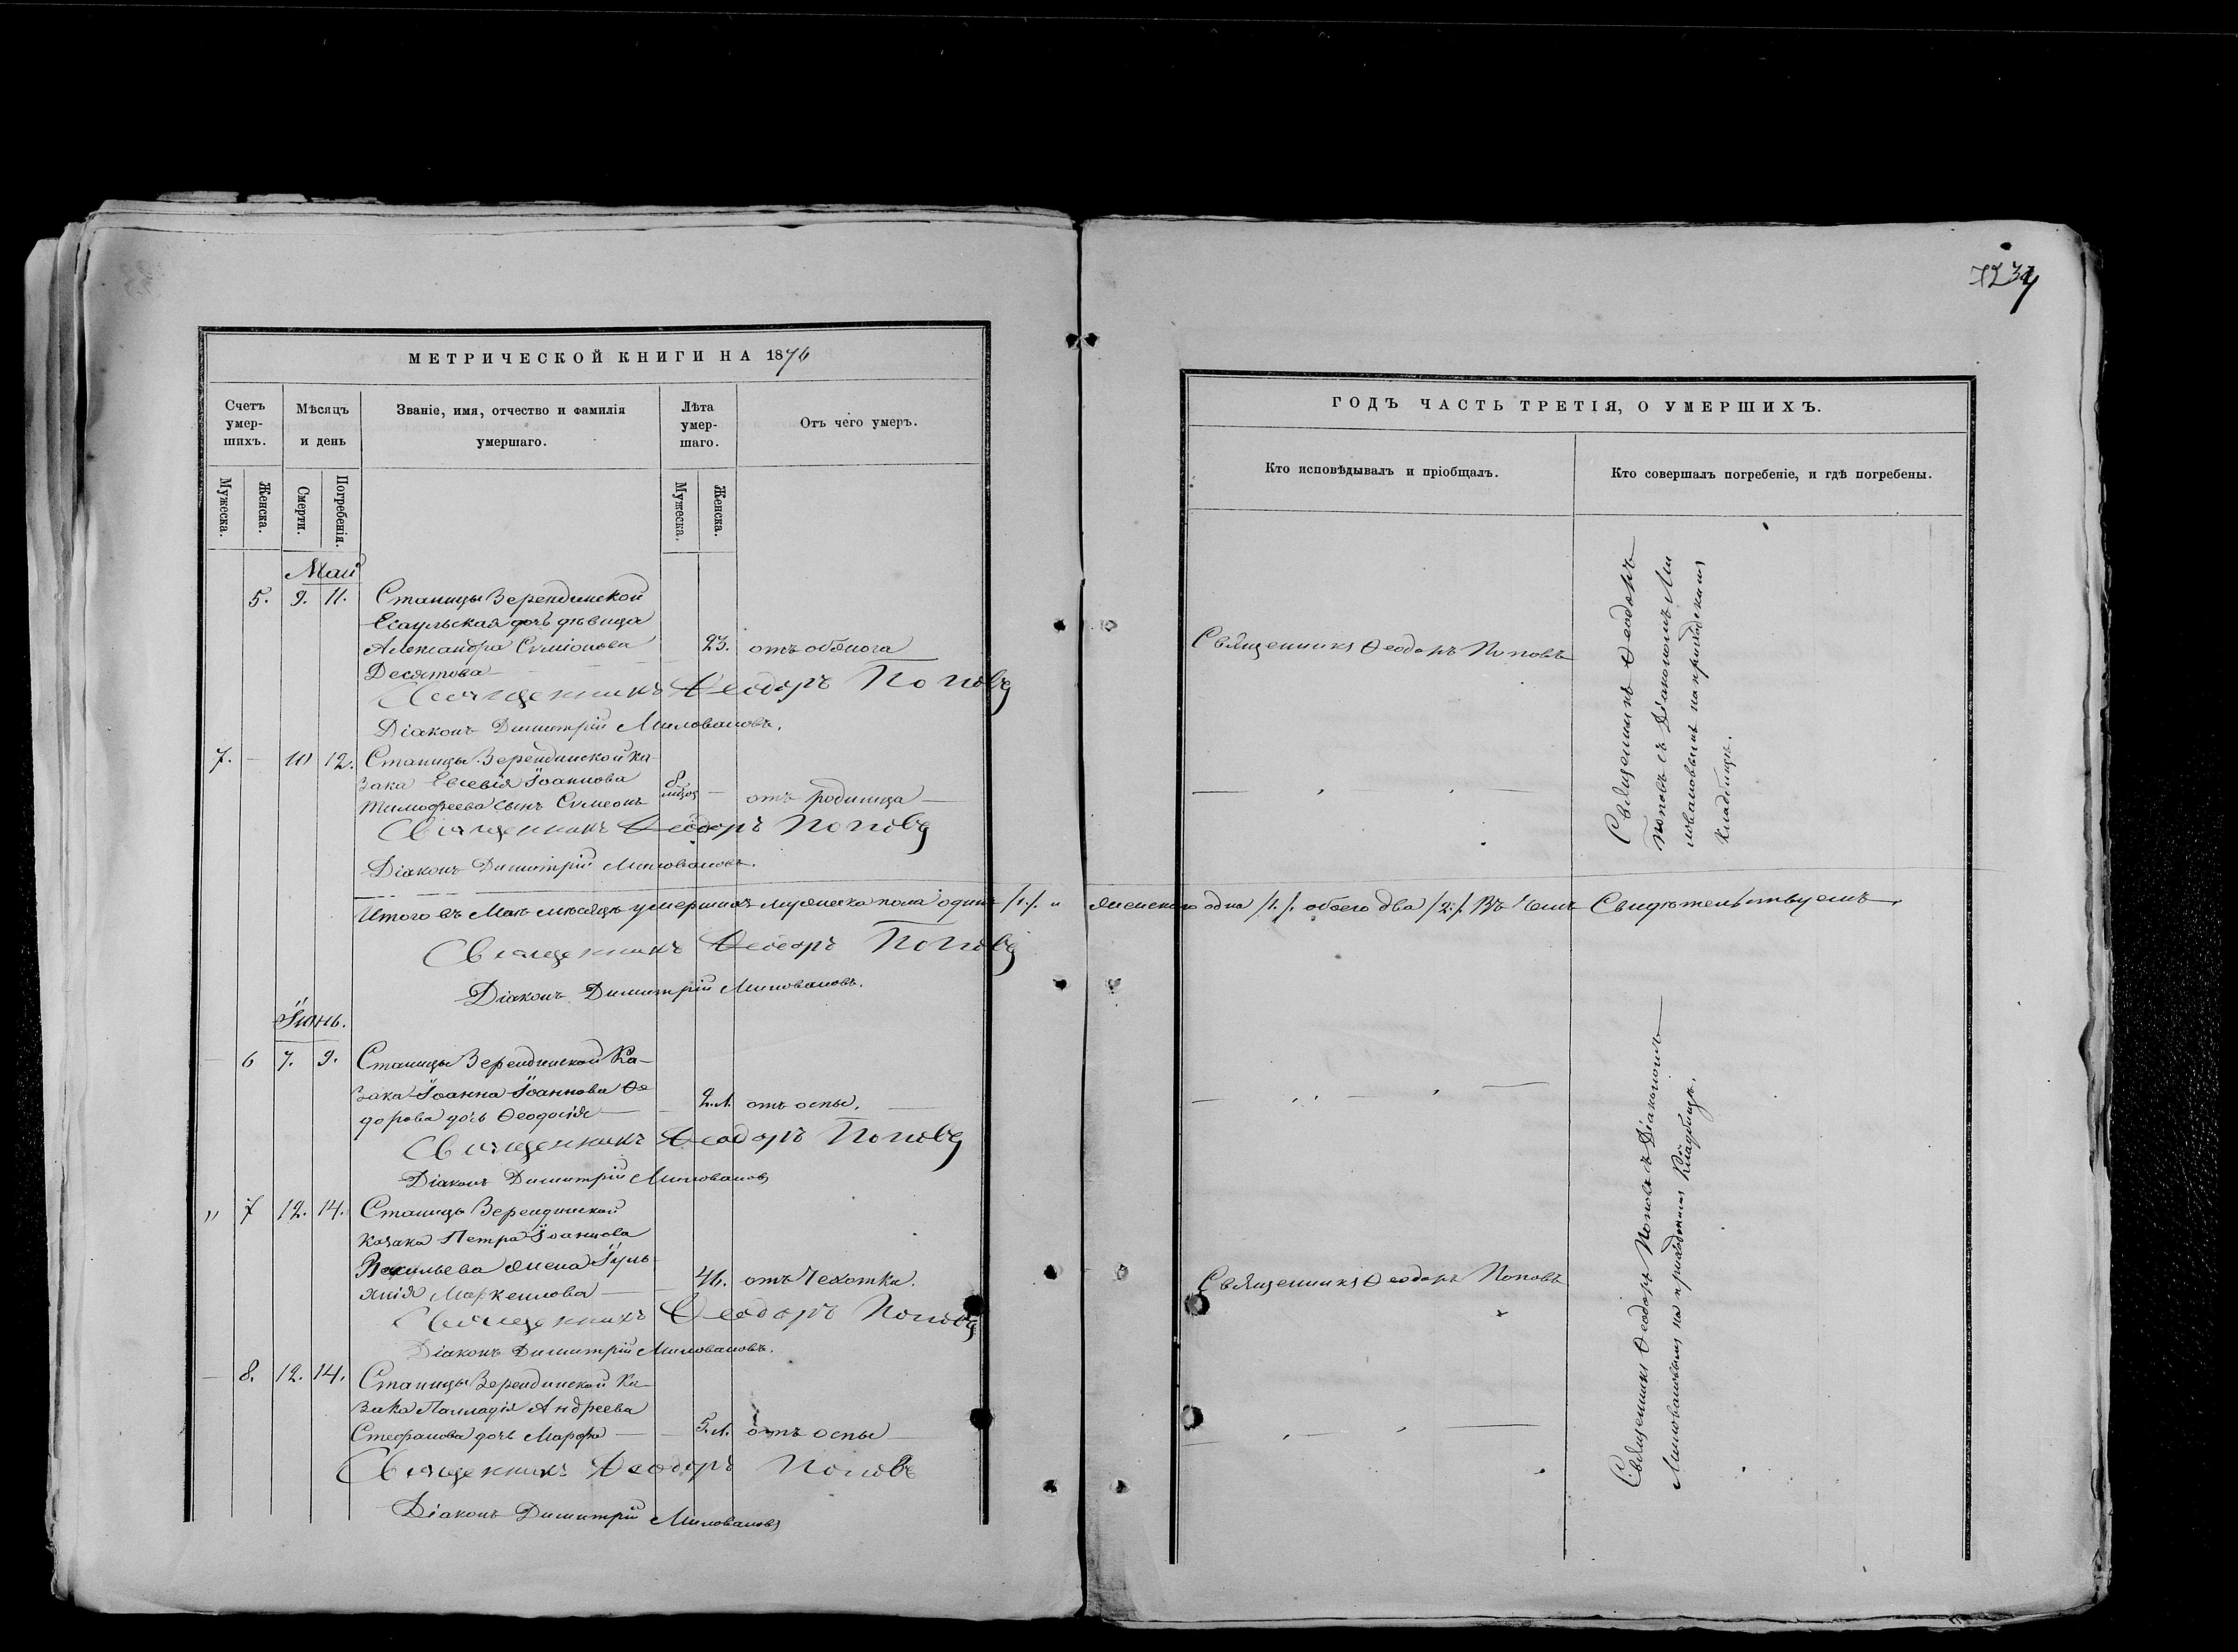 7234
МЕТРИЧЕСКОЙ КНИГИ НА 1876
Счетъ умер-шихъ.
Мѣсяцъ и день
Званіе, имя, отчество и фамилія умершаго.
Лѣта умер-шаго.
Отъ чего умеръ.
Мужеска.
Женска.
Смерти.
Погребенія.
Мужеска.
Женска.
Май
5. 9. 11. Станицы Зерендинской
Есаульская дочь дѣвица
Александра Симіонова 23. отъ обжога
Десятова
Священникъ Ѳеодоръ Поповъ
Діаконъ Димитрій Миловановъ.
7. — 10 12. Станицы Зерендинской ка-
зака Евсевія Іоаннова
Тимофеева сынъ Симеонъ 8 — отъ родимца —
Священникъ Ѳеодоръ Поповъ
Діаконъ Димитрій Миловановъ.
Итого въ Маѣ мѣсяцѣ умершихъ мужеска пола одинъ /1./. и
Священникъ Ѳеодоръ Поповъ
Діаконъ Димитрій Миловановъ.
Іюнь.
— 6 7. 9. Станицы Зерендинской Ка-
зака Іоанна Іоаннова Ѳе
дорова дочь Ѳеодосія — 2.л. отъ оспы.
Священникъ Ѳеодоръ Поповъ
Діаконъ Димитрій Миловановъ
" 7 12. 14. Станицы Зерендинской
казака Петра Іоаннова
Васильева жена Іулі-
анія Маркеллова — 46. отъ Чехотки.
Священникъ Ѳеодоръ Поповъ
Діаконъ Димитрій Миловановъ.
— 8. 12. 14. Станицы Зерендинской Ка-
зака Палладія Андреева
Стефанова дочь Марфа — 5.л. отъ оспы
Священникъ Ѳеодоръ Поповъ
Діаконъ Димитрій Миловановъ
ГОДЪ ЧАСТЬ ТРЕТІЯ, О УМЕРШИХЪ.
Кто исповѣдывалъ и пріобщалъ.
Кто совершалъ погребеніе, и гдѣ погребены.
Священникъ Ѳеодоръ Поповъ
Священникъ Ѳеодоръ
Поповъ съ Діакономъ Ми
ловановымъ на приходскомъ
кладбищѣ.
женского одна /1./. обоего два /2./. Въ чемъ Свидѣтельствуемъ.
Священникъ Ѳеодоръ Поповъ
Священникъ Ѳеодоръ Поповъ съ Діакономъ
Миловановымъ на приходскомъ Кладбищѣ.